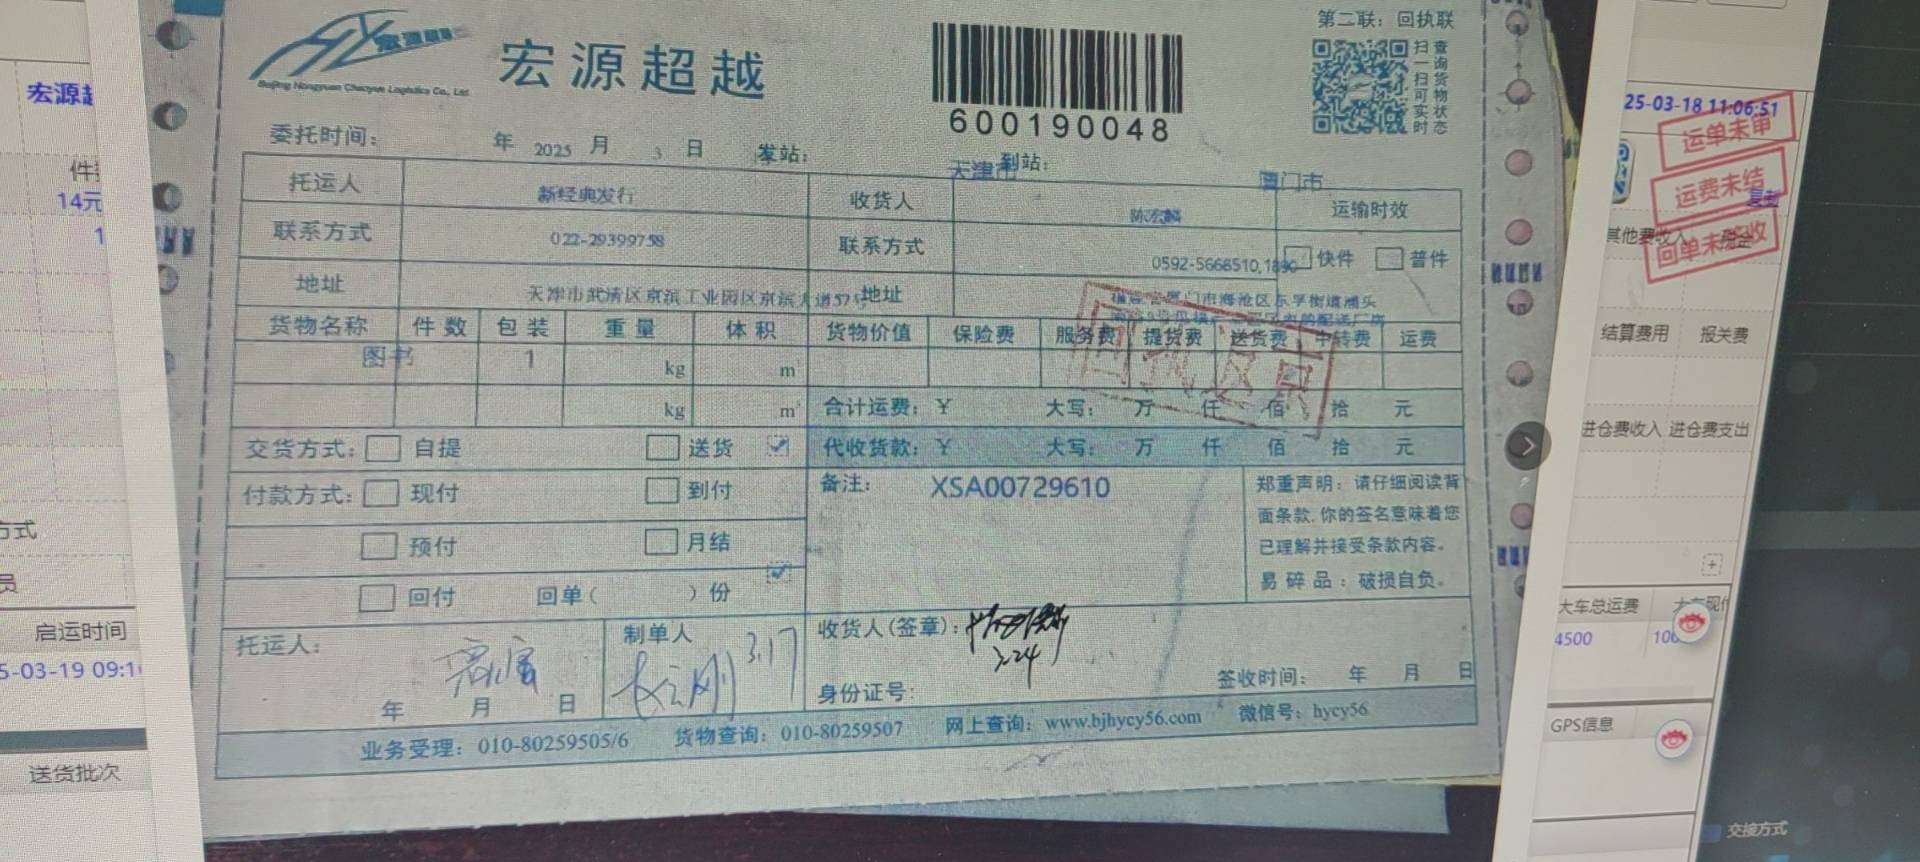 宏源超越
Beijing Hongyuan Chaoyue Logistics Co., Ltd.
宏源超越
600190048
第二联：回执联
扫一扫可实时
查询货物状态
委托时间： 年 2025 月 3 日 发站： 天津市 到站： 厦门市
托运人 新经典发行 收货人 陈宏麟 运输时效
联系方式 022-29399758 联系方式 0592-5668510,1890 快件 普件
地址 天津市武清区京滨工业园区京滨大道57 地址
货物名称 件数 包装 重量 体积 货物价值 保险费 服务费 提货费 送货费 中转费 运费
图书 1 kg m
kg m³ 合计运费：￥ 大写： 万 仟 佰 拾 元
交货方式： 自提 送货 代收货款：￥ 大写： 万 仟 佰 拾 元
付款方式： 现付 到付 备注： XSA00729610
预付 月结
回付 回单（ ）份
郑重声明：请仔细阅读背
面条款,你的签名意味着您
已理解并接受条款内容。
易碎品：破损自负。
托运人： 制单人 3.17 收货人(签章)：
3.24
年 月 日 身份证号： 签收时间： 年 月 日
业务受理：010-80259505/6 货物查询：010-80259507 网上查询：www.bjhycy56.com 微信号：hycy56
宏源超
14元
1
方式
员
启运时间
5-03-19 09:1
送货批次
25-03-18 11:06:51
运单未审
运费未结
回单未签收
复制
其他费收入
结算费用 报关费
进仓费收入 进仓费支出
大车总运费 大车现付
4500 100
GPS信息
交接方式